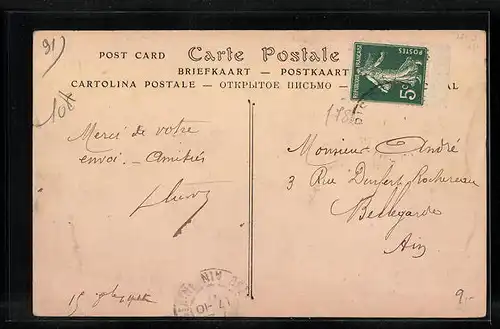 91)
POST CARD Carte Postale
BRIEFKAART — POSTKAART
CARTOLINA POSTALE — ОТКРЫТОЕ ПИСЬМО —
AL
POSTES
REPUBLIQUE FRANÇAISE
5c
Merci de votre
envoi. Amitiés
Monsieur André
3 Rue Denfert Rochereau
Bellegarde
Ain
AIN
17-10
15
9.-